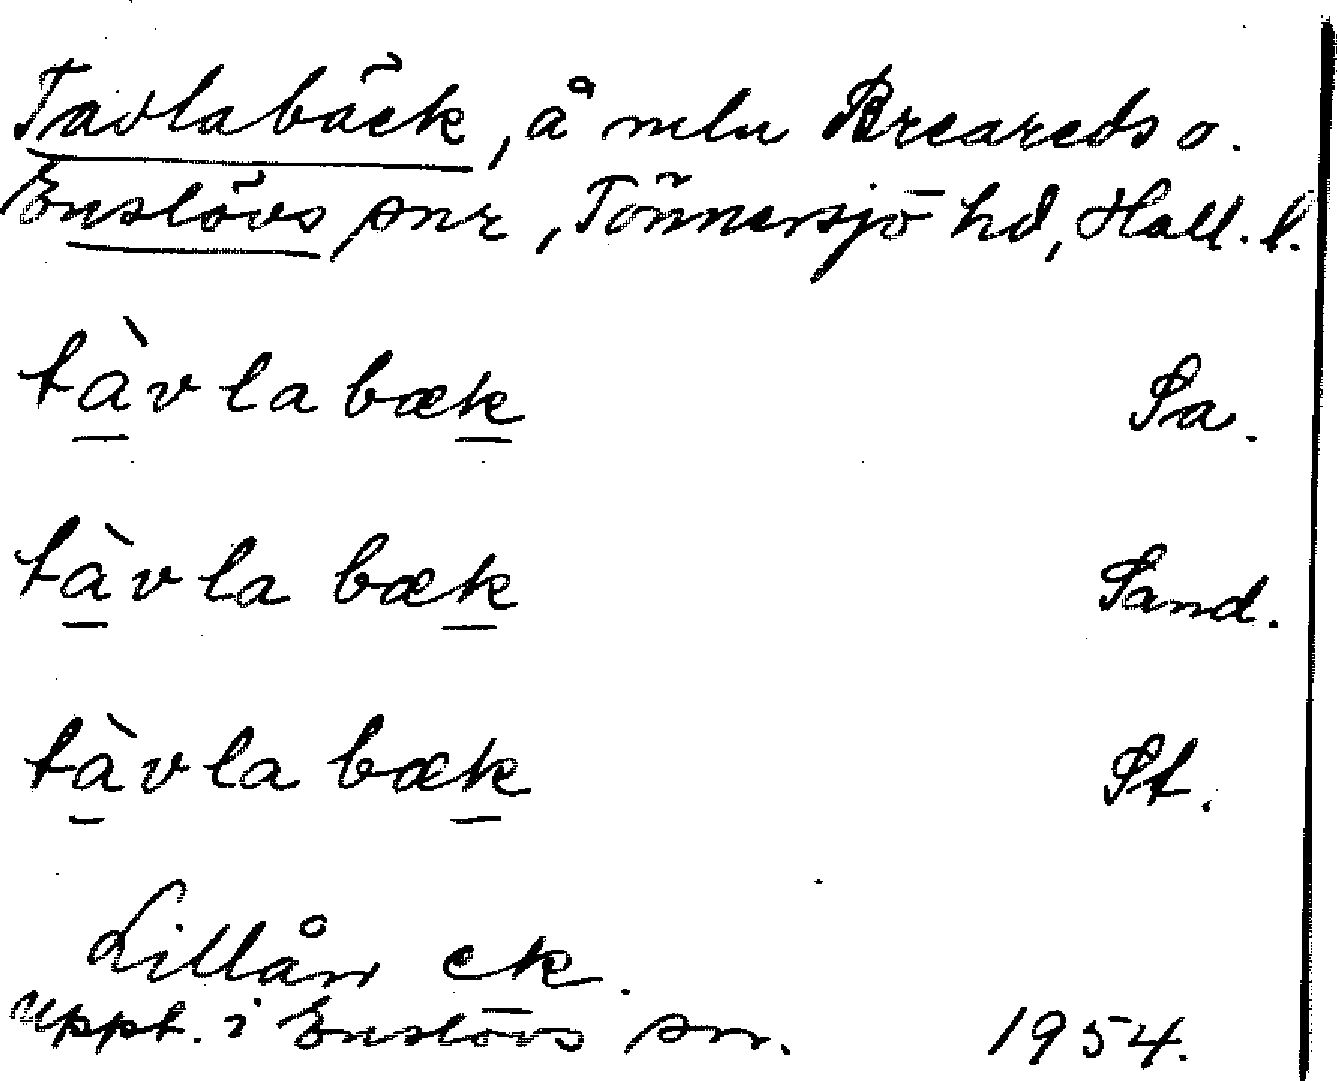 Tavlabäck, å mln Breareds o.
Enslövs snr, Tönnersjö hd, Hall. l.
tàvlabæk Sa.
tàvla bæk Sand.
tàvla bæk St.
Lillån ek.
Uppt. i Enslövs sn. 1954.